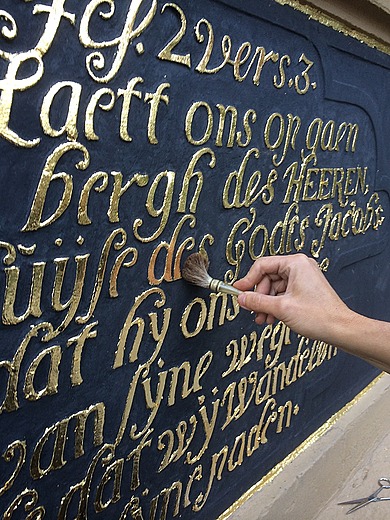 Jes. 2 vers. 3.
Laett ons op gaen
bergh des HEEREN,
huÿse des Godts Jacobs:
dat hy ons
van sÿne wege
dat wÿ wandelen
sine paden.